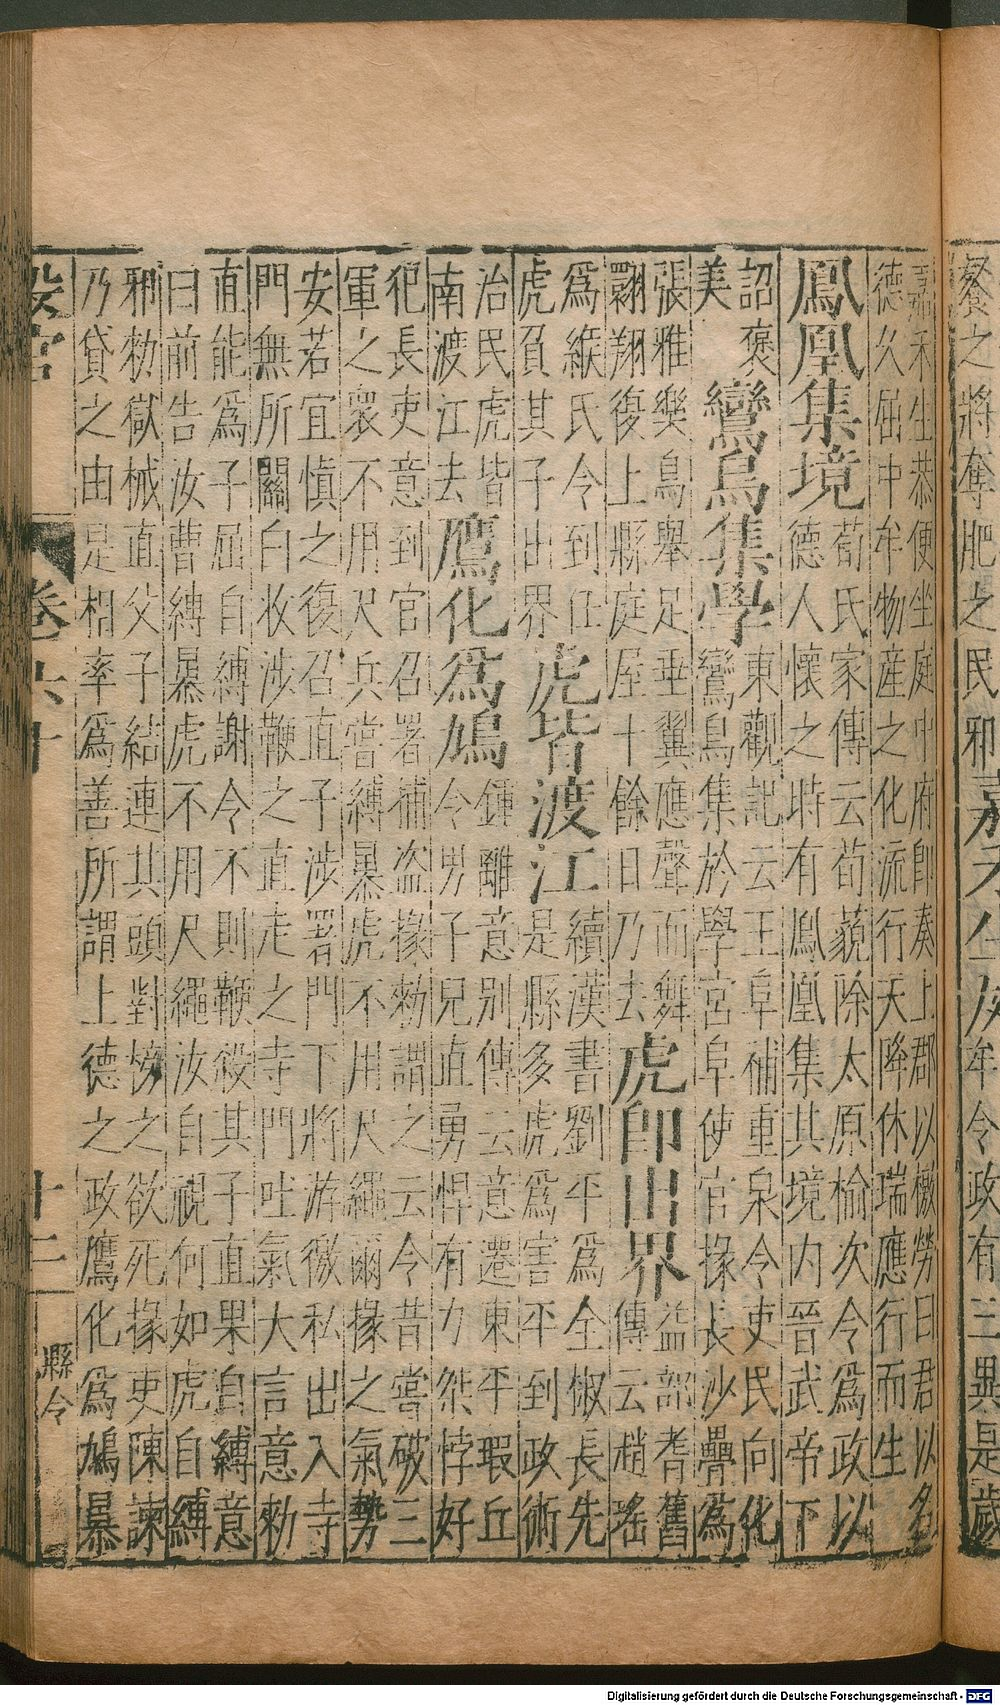 餐之將奪肥之民邪
嘉禾生庭
牟令政有三異是歲
嘉禾生恭便坐庭中府即奏上郡以檄勞曰君以名
德久屈中牟物産之化流行天降休瑞應行而生
鳳凰集境
荀氏家傳云荀藐除太原榆次令爲政以
德人懷之時有鳳凰集其境内晉武帝下
詔褒
美
鸞鳥集學
東觀記云王阜補重泉令吏民向化
鸞鳥集於學宮阜使官掾長沙疊爲
張雅樂鳥舉足垂翼應聲而舞
翾翔復上縣庭屋十餘日乃去
虎即出界
益部耆舊
傳云趙瑤
爲緱氏令到任
虎負其子出界
虎皆渡江
續漢書劉平爲全椒長先
是縣多虎爲害平到政術
治民虎皆
南渡江去
鷹化爲鳩
鍾離意別傳云意遷東平瑕丘
令男子兒直勇悍有力桀悖好
犯長吏意到官召署補盗掾勑謂之云令昔嘗破三
軍之衆不用尺兵嘗縛暴虎不用尺繩爾掾之氣勢
安若宜慎之復召直子涉署門下將游徼私出入寺
門無所關白收涉鞭之直走之寺門吐氣大言意勑
直能爲子屈自縛謝令不則鞭殺其子直果自縛意
曰前告汝曹縛暴虎不用尺繩汝自視何如虎自縛
邪勑獄械直父子結連其頭對榜之欲死掾吏陳諫
乃貸之由是相率爲善所謂上德之政鷹化爲鳩暴
設官
卷六十
十二
縣令
Digitalisierung gefördert durch die Deutsche Forschungsgemeinschaft - DFG